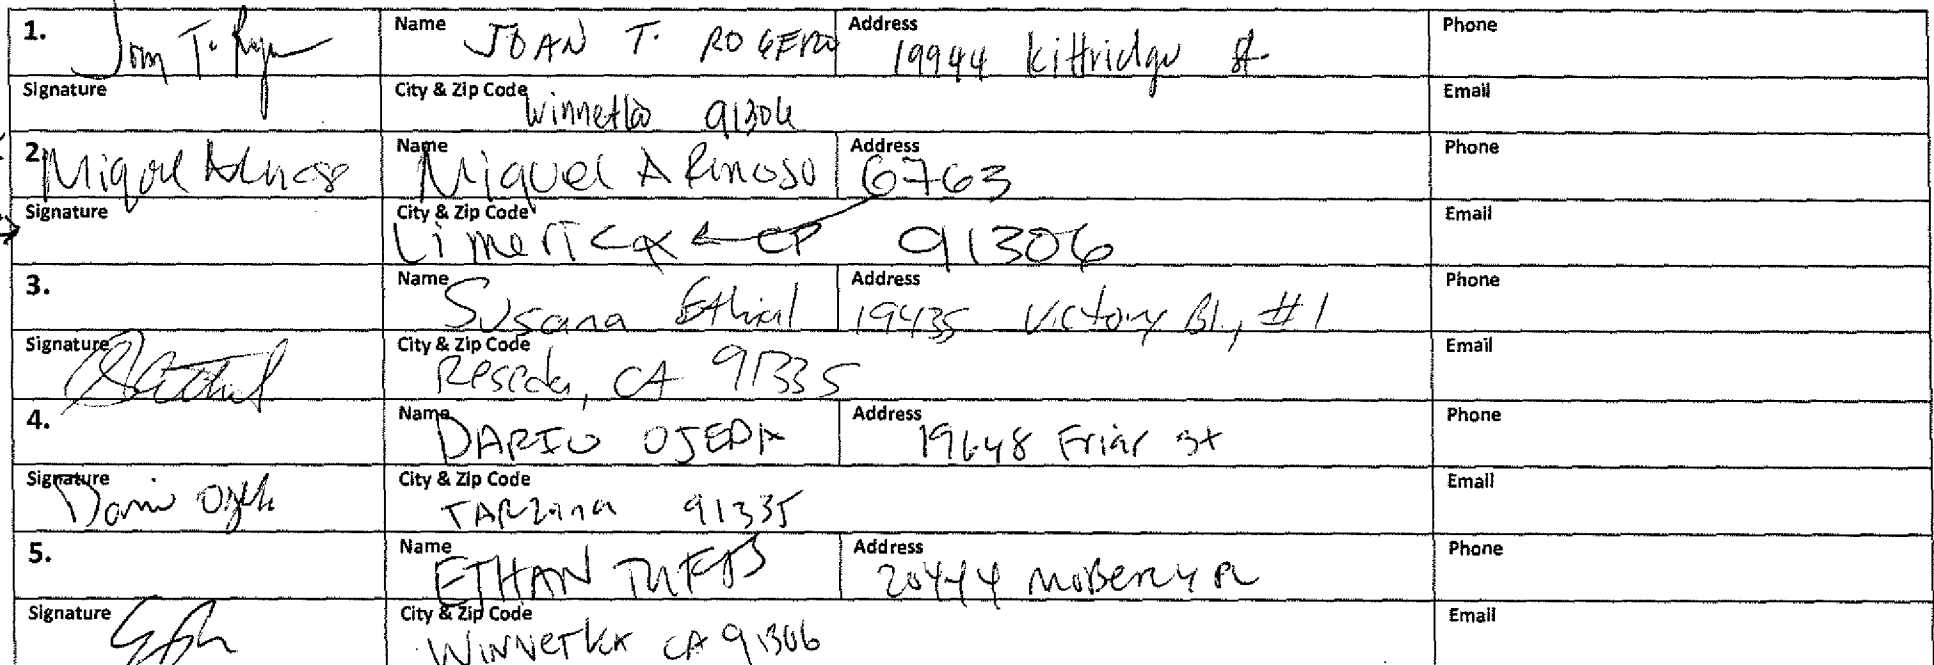 1. Name JOAN T. ROGERO Address 19944 Kittridge St. Phone
Signature City & Zip Code Winnetka 91306 Email
2. Miguel Name Miguel A Address 6763 Phone
Signature City & Zip Code 91306 Email
3. Name Susana Ethial Address 19435 Victory Bl, #1 Phone
Signature City & Zip Code Reseda, CA 91335 Email
4. Name DARIO OJEDA Address 19648 Friar St Phone
Signature Dario Ojeda City & Zip Code TARzana 91335 Email
5. Name ETHAN TUFTS Address Phone
Signature City & Zip Code WINNETKA CA 91306 Email